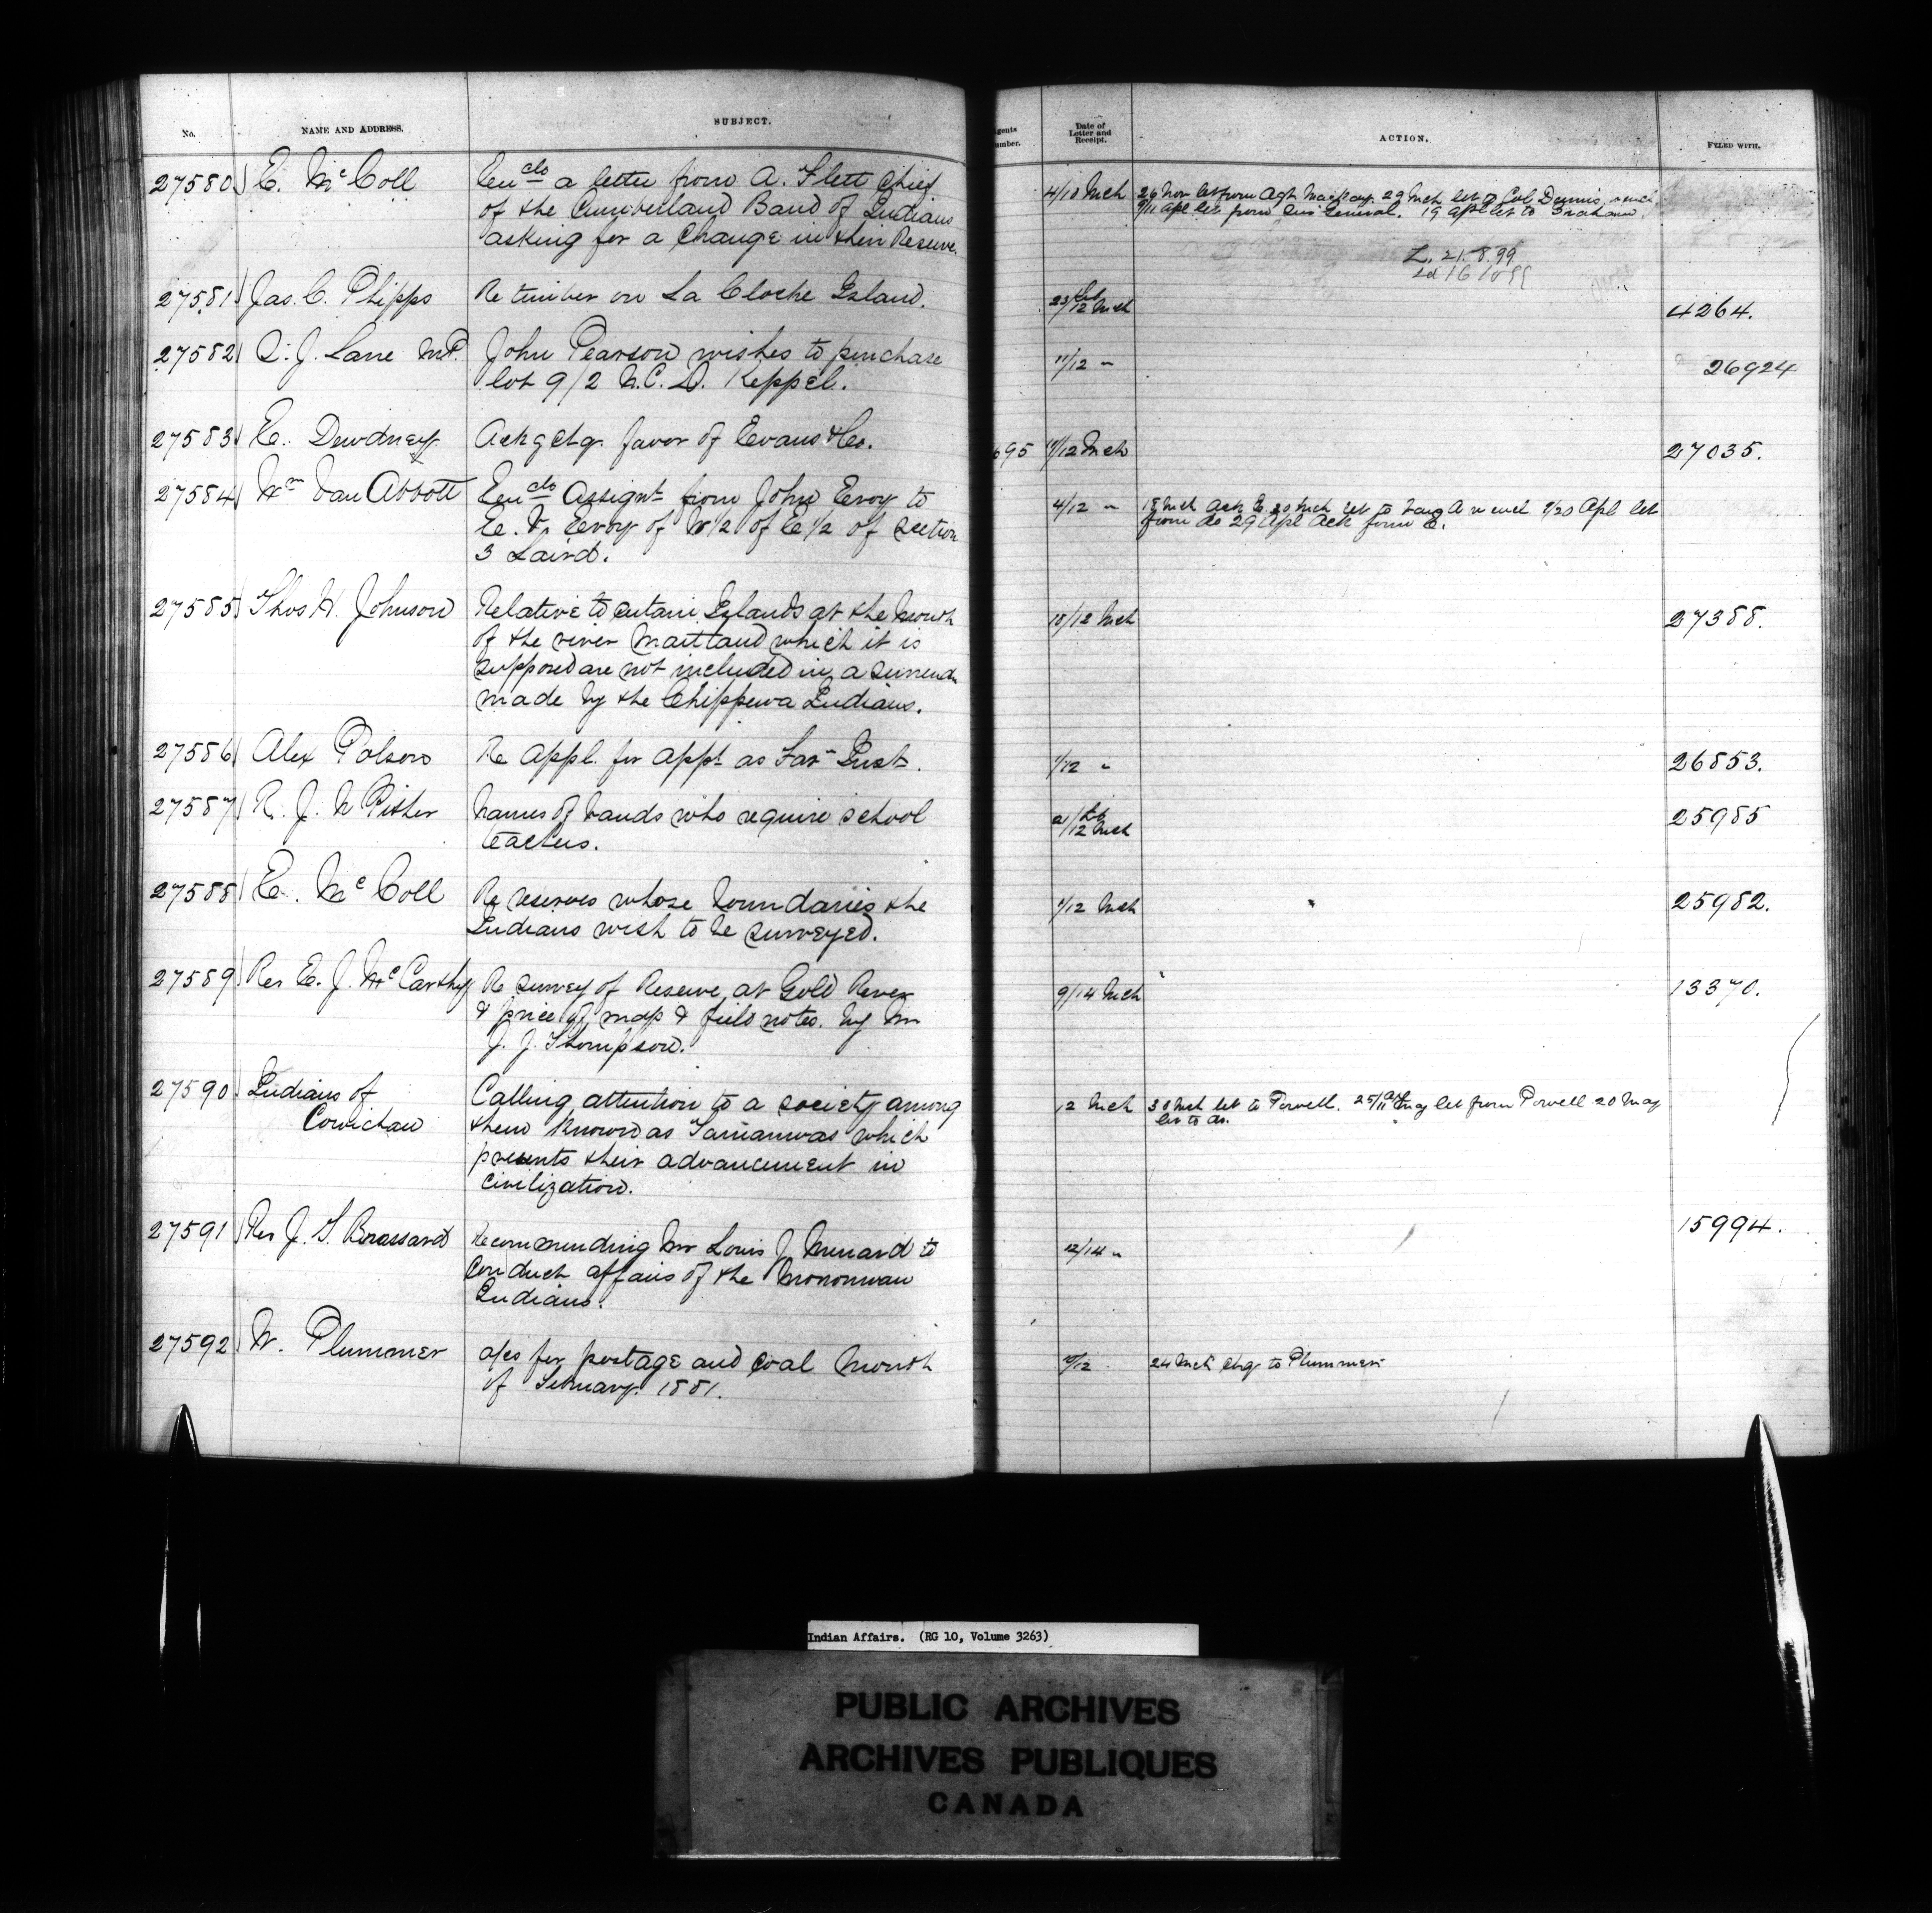 No. NAME AND ADDRESS. SUBJECT.
Agents Number. Date of Letter and Receipt. ACTION. FILED WITH.
27580 E. McColl Enclo a letter from A. Flett Chief
of the Cumberland Band of Indians
asking for a change in their Reserve.
4/10 Mch 26 Nov let from Agt Mackay. 29 Mch let to Col Dennis
9/11 Apl let from Sur General. 19 Apl let to
L. 21.8.99
27581 Jas. C. Phipps Re timber on La Cloche Island. 23 Feb/12 Mch 4264.
27582 S. J. Lane M.P. John Pearson wishes to purchase 11/12 " 26924
lot 9/2 N.C.D. Keppel.
27583 E. Dewdney Ackg chq. favor of Evans & Co. 695 /12 Mch 27035.
27584 Wm Van Abbott Enclo Assignt from John Evoy to
E. Evoy of W 1/2 of E 1/2 of section
3 Laird.
4/12 " 18 Mch Ack E 30 Mch let to Van A w encl /20 Apl let
from do 29 Apl Ack form E.
27585 Thos H. Johnson Relative to certain Islands at the mouth
of the river Maitland which it is
supposed are not included in a surrender
made by the Chippewa Indians.
10/12 Mch 27388.
27586 Alex Polson Re appl. for appt as Far Inst. 1/12 " 26853.
27587 R. J. N. Pither Names of bands who require school
teachers.
2 Feb/12 Mch 25985
27588 E. McColl Re reserves whose boundaries the
Indians wish to be surveyed.
1/12 Mch 25982.
27589 Rev E. J. McCarthy Re survey of Reserve at Gold River
& price of map & field notes. by Mr
J. J. Thompson.
9/14 Mch 13370.
27590 Indians of
Cowichan
Calling attention to a society among
them known as Tamanwas which
prevents their advancement in
civilization.
12 Mch 30 Mch let to Powell. 25 Apl/11 May let from Powell 20 May
let to do.
27591 Rev J. G. Brassard Recommending Mr Louis J. Menard to
conduct affairs of the
Indians.
12/14 " 15994.
27592 W. Plummer a/cs for postage and coal month
of February. 1881.
10/12 24 Mch chq to Plummer
Indian Affairs. (RG 10, Volume 3263)
PUBLIC ARCHIVES
ARCHIVES PUBLIQUES
CANADA